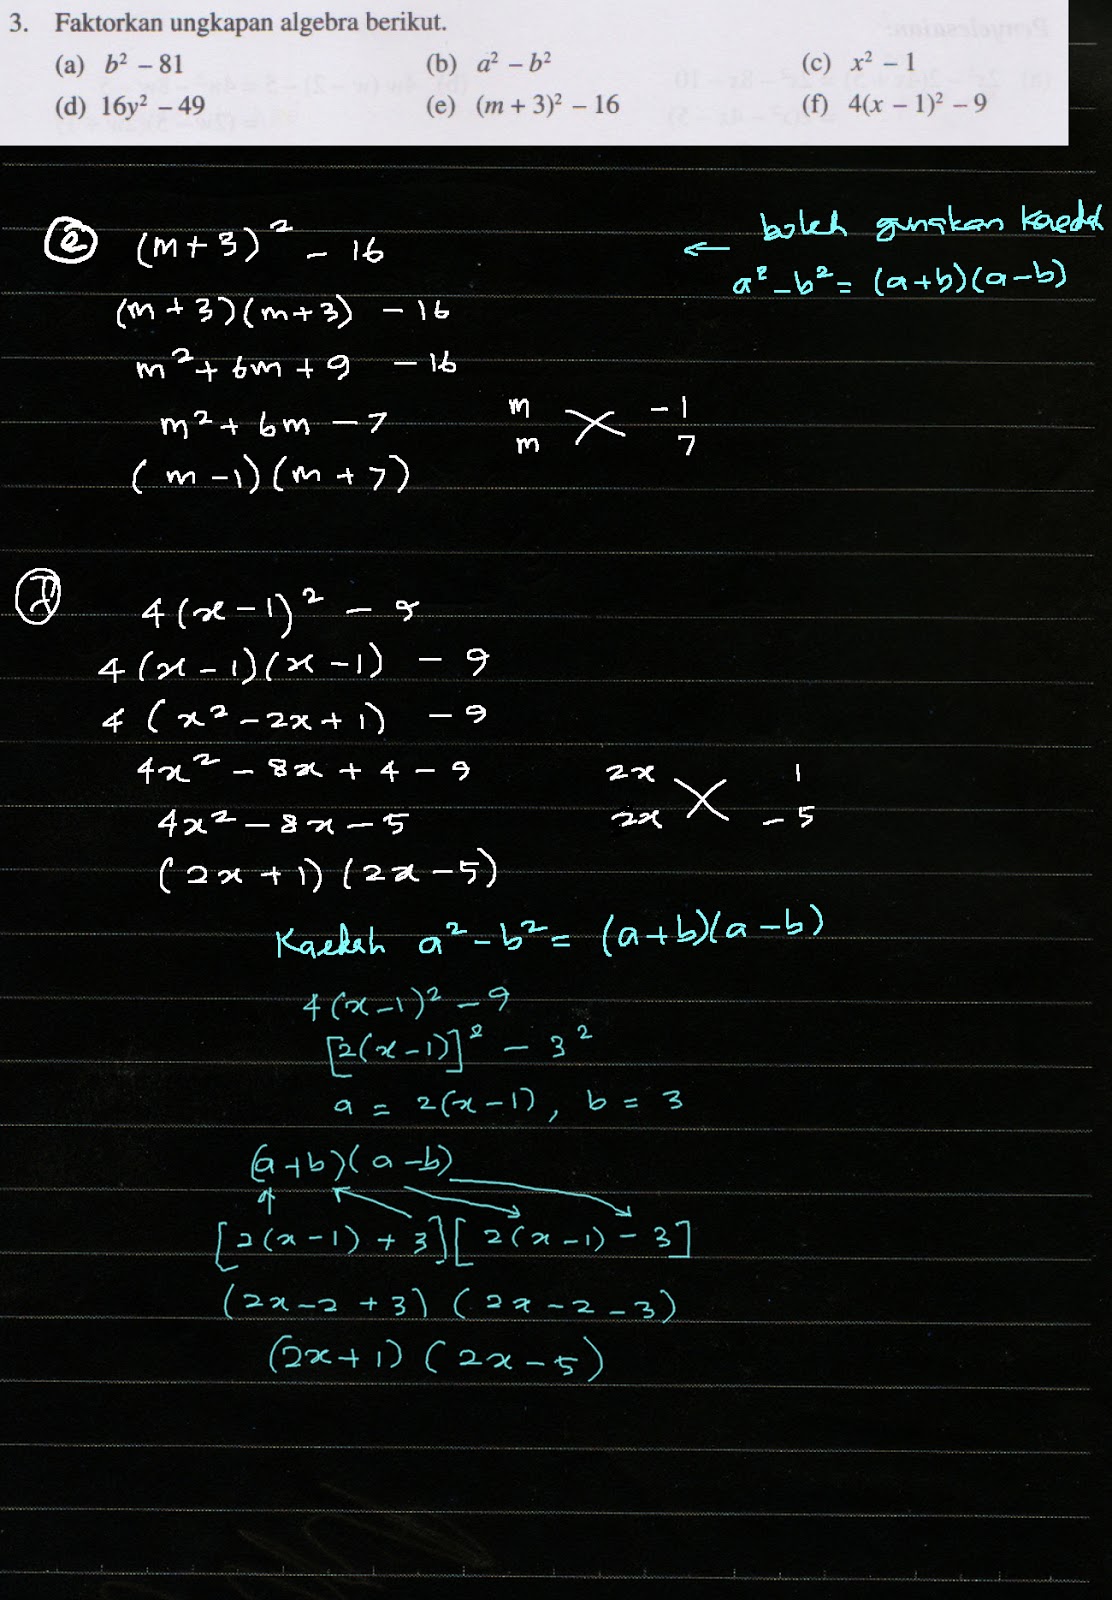 3. Faktorkan ungkapan algebra berikut.
(a) b² – 81 (b) a² – b² (c) x² – 1
(d) 16y² – 49 (e) (m + 3)² – 16 (f) 4(x – 1)² – 9
(e) (m + 3)² – 16
← boleh gunakan kaedah
a² – b² = (a+b)(a–b)
(m + 3)(m + 3) – 16
m² + 6m + 9 – 16
m² + 6m – 7 m –1
m 7
(m – 1)(m + 7)
(f) 4(x – 1)² – 9
4(x – 1)(x – 1) – 9
4(x² – 2x + 1) – 9
4x² – 8x + 4 – 9 2x 1
4x² – 8x – 5 2x –5
(2x + 1)(2x – 5)
Kaedah a² – b² = (a+b)(a–b)
4(x–1)² – 9
[2(x–1)]² – 3²
a = 2(x–1), b = 3
(a+b)(a–b)
[2(x–1) + 3][2(x–1) – 3]
(2x–2 + 3)(2x – 2 – 3)
(2x + 1)(2x – 5)